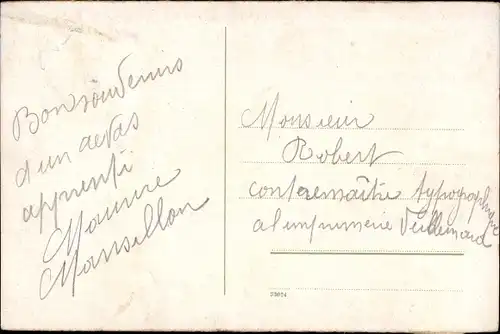 Bon souvenirs
d'un de vos
apprenti
Maurice
Mansillon
Monsieur
Robert
contremaître typographique
a l'imprimerie Veillemard